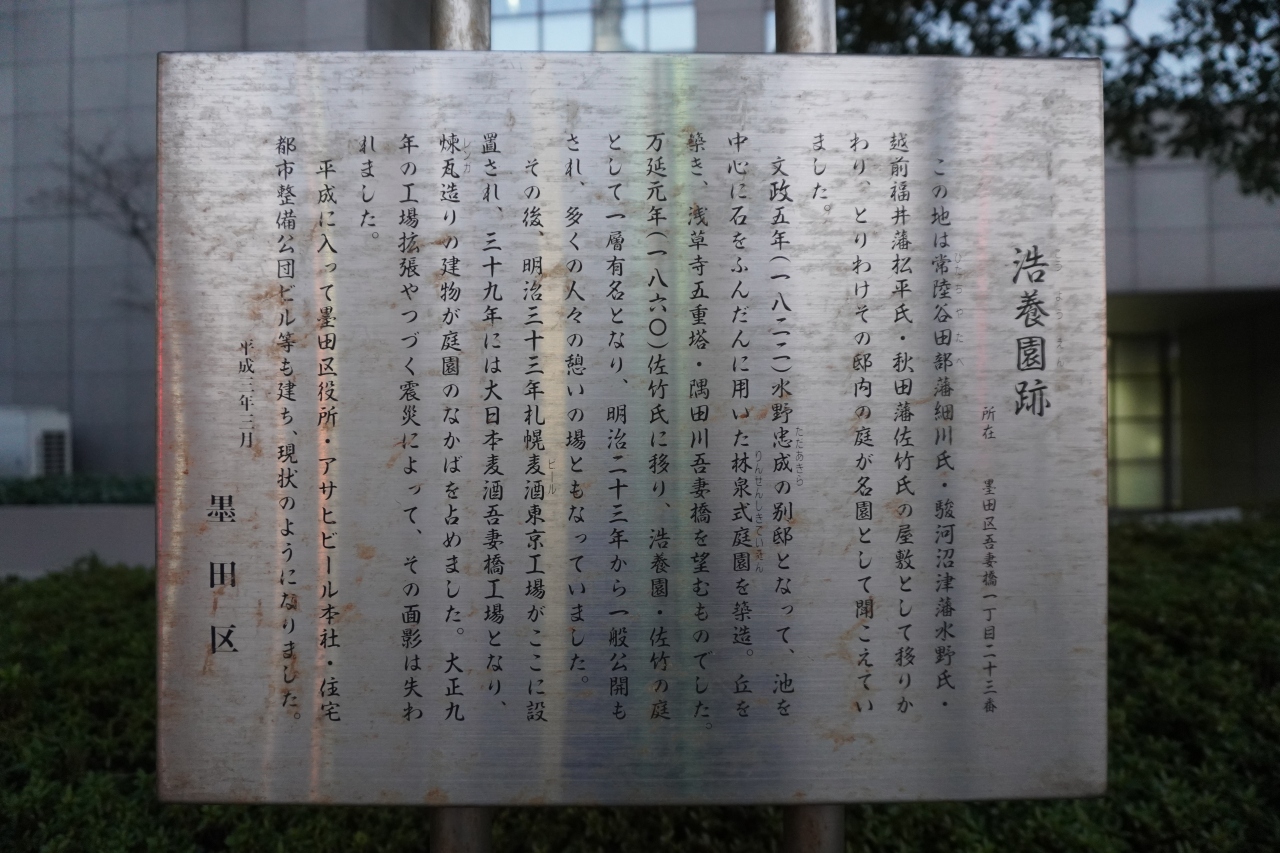 浩養園跡
所在 墨田区吾妻橋一丁目二十三番
この地は常陸谷田部藩細川氏・駿河沼津藩水野氏・
越前福井藩松平氏・秋田藩佐竹氏の屋敷として移りか
わり、とりわけその邸内の庭が名園として聞こえてい
ました。
文政五年(一八二二)水野忠成の別邸となって、池を
ただあきら
中心に石をふんだんに用いた林泉式庭園を築造。丘を
りんせんしきていえん
築き、浅草寺五重塔・隅田川吾妻橋を望むものでした。
万延元年(一八六〇)佐竹氏に移り、浩養園・佐竹の庭
として一層有名となり、明治二十三年から一般公開も
され、多くの人々の憩いの場ともなっていました。
その後、明治三十三年札幌麦酒東京工場がここに設
ビール
置され、三十九年には大日本麦酒吾妻橋工場となり、
煉瓦造りの建物が庭園のなかばを占めました。大正九
レンガ
年の工場拡張やつづく震災によって、その面影は失わ
れました。
平成に入って墨田区役所・アサヒビール本社・住宅
都市整備公団ビル等も建ち、現状のようになりました。
平成三年二月
墨田区